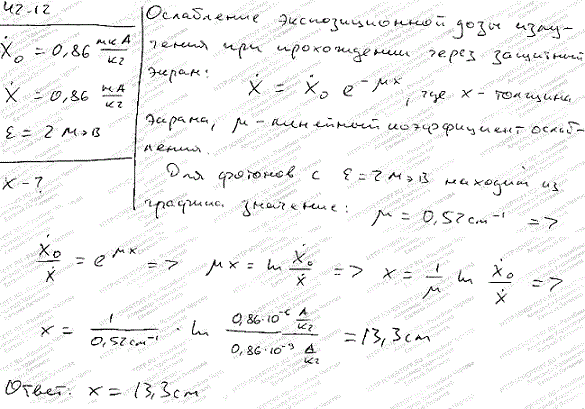 42.12
Ẋ₀ = 0,86 мкА/кг
Ẋ = 0,86 нА/кг
ε = 2 МэВ
X - ?
Ослабление экспозиционной дозы излу-
чения при прохождении через защитный
экран:
Ẋ = Ẋ₀ e^(-μx), где x - толщина
экрана, μ - линейный коэффициент ослаб-
ления.
Для фотонов с ε = 2 МэВ находим из
графика значение: μ = 0,52 см⁻¹ =>
Ẋ₀/Ẋ = e^(μx) => μx = ln Ẋ₀/Ẋ => x = 1/μ ln Ẋ₀/Ẋ =>
x = 1/(0,52 см⁻¹) · ln (0,86·10⁻⁶ А/кг)/(0,86·10⁻⁹ А/кг) = 13,3 см
Ответ: x = 13,3 см